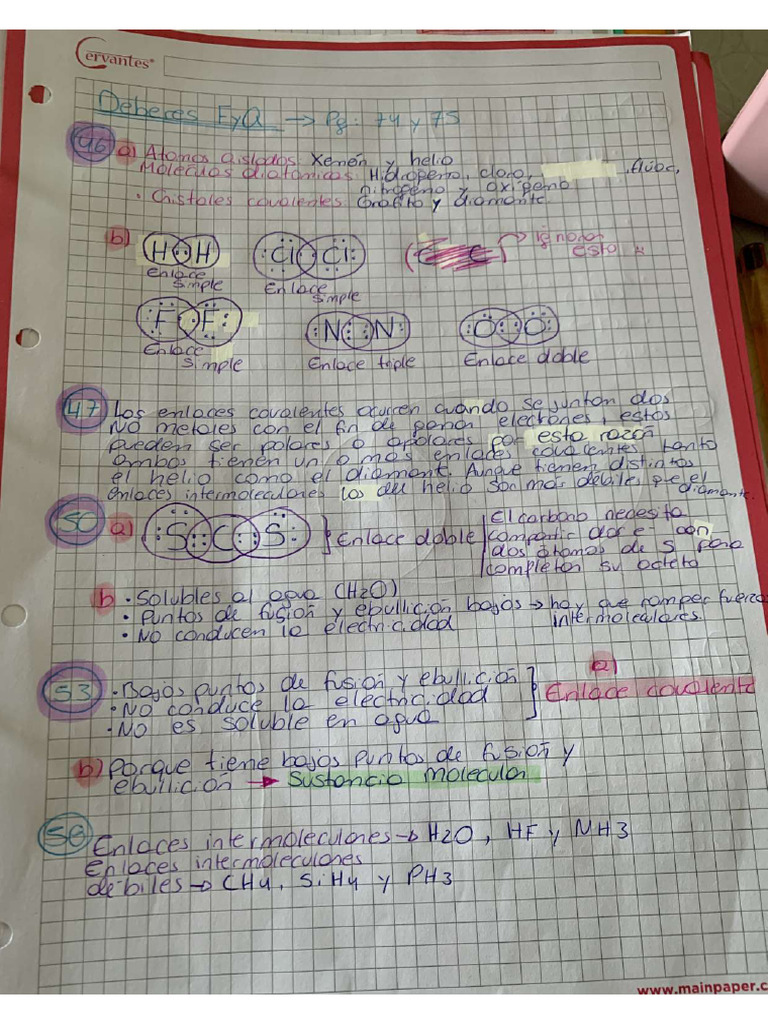 Cervantes®
Deberes FyQ → Pg: 74 y 75
46 a) Atomos aislados Xenón y helio
Moleculas diatómicas Hidrogeno, cloro, flúor,
nitrogeno y oxigeno
· Cristales covalentes Grafito y diamante.
b) H H Cl Cl ( ) → ignorar
esto
Enlace simple Enlace simple
F F N N O O
Enlace simple Enlace triple Enlace doble
47 Los enlaces covalentes ocurren cuando se juntan dos
no metales con el fin de ganar electrones, estos
pueden ser polares o apolares por esta razón
ambos tienen un o mas enlaces covalentes tanto
el helio como el diamant. Aunque tienen distintos
enlaces intermoleculares los del helio son mas debiles que el
diamante.
50 a) S C S } Enlace doble
El carbono necesita
compartir dos e- con
dos átomos de S para
completar su octeto
b · Solubles al agua (H2O)
· Puntos de fusión y ebullición bajos → hay que romper fuerzas
intermoleculares.
· No conducen la electricidad
53 · Bajos puntos de fusión y ebullición
· No conduce la electricidad
· No es soluble en agua
a)
Enlace covalente
b) Porque tiene bajos puntos de fusión y
ebullición → Sustancia molecular
56 Enlaces intermoleculares → H2O, HF y NH3
Enlaces intermoleculares
debiles → CH4, SiH4 y PH3
www.mainpaper.c